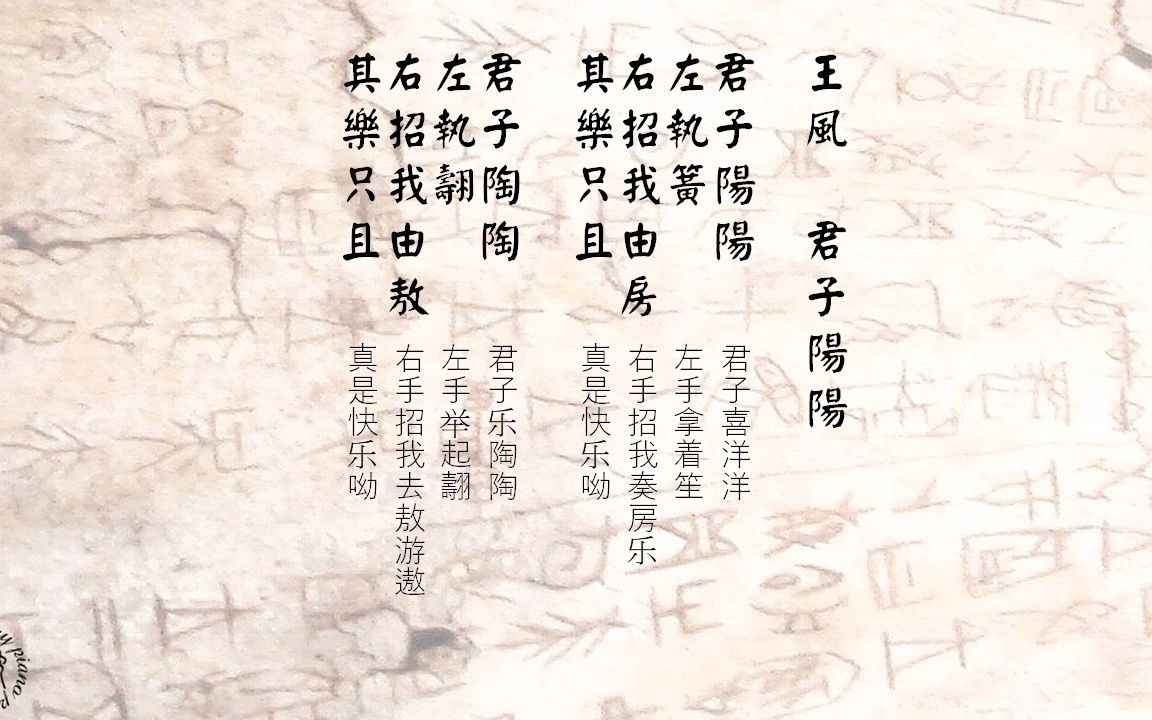 王風　君子陽陽
君子陽陽
左執簧
右招我由房
其樂只且
君子喜洋洋
左手拿着笙
右手招我奏房乐
真是快乐呦
君子陶陶
左執翿
右招我由敖
其樂只且
君子乐陶陶
左手举起翿
右手招我去敖游遨
真是快乐呦
piano